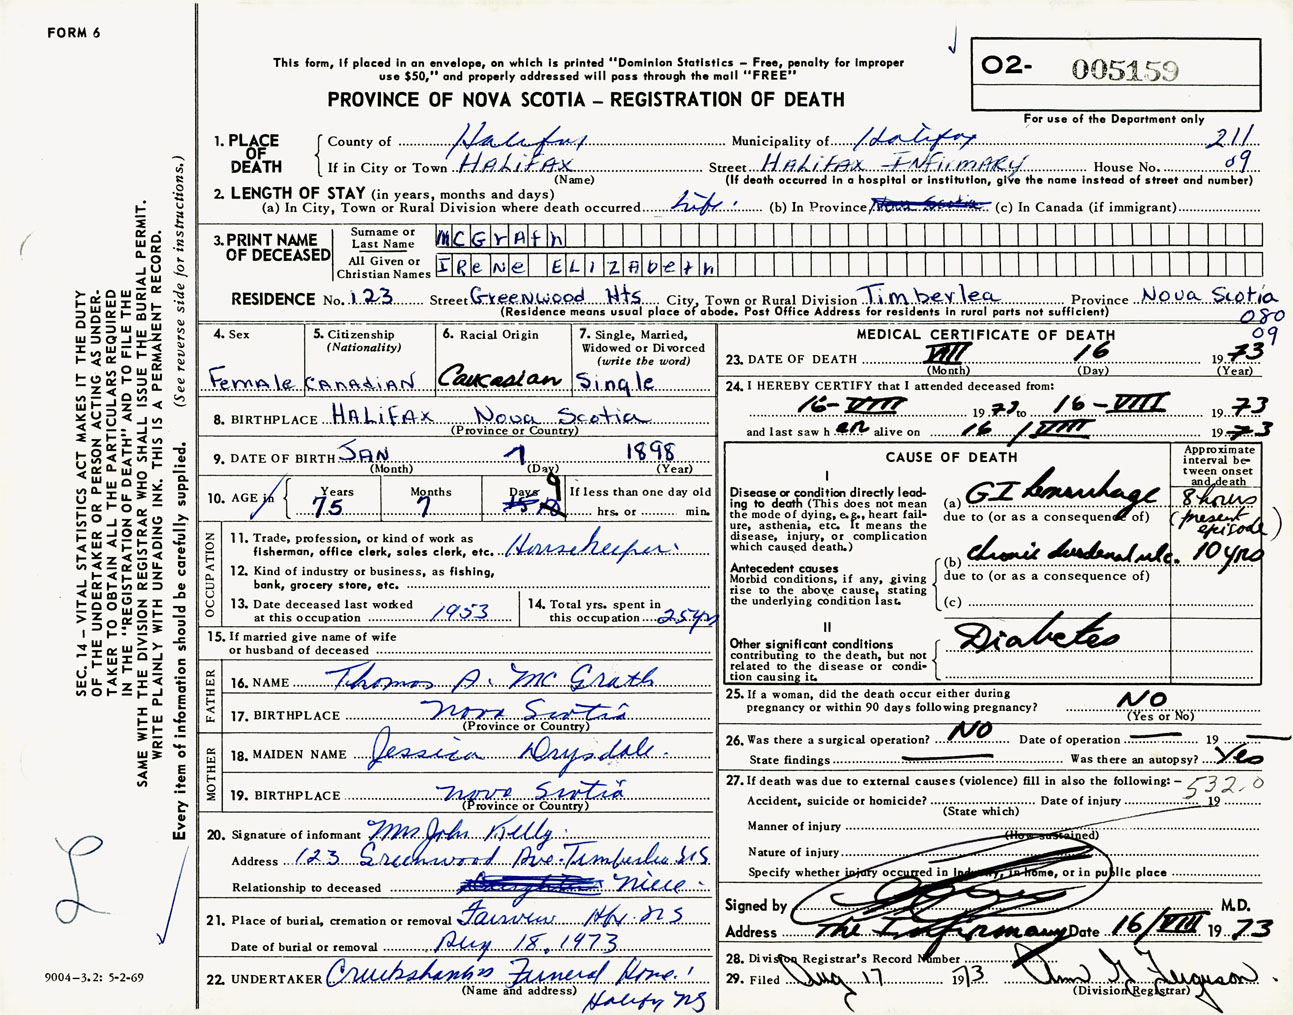 FORM 6
This form, if placed in an envelope, on which is printed "Dominion Statistics – Free, penalty for improper
use $50," and properly addressed will pass through the mail "FREE"
PROVINCE OF NOVA SCOTIA – REGISTRATION OF DEATH
O2- 005159
For use of the Department only
1. PLACE OF DEATH
County of Halifax Municipality of Halifax 211
If in City or Town HALIFAX Street HALIFAX INFirMARY House No. 09
(Name) (If death occurred in a hospital or institution, give the name instead of street and number)
2. LENGTH OF STAY (in years, months and days)
(a) In City, Town or Rural Division where death occurred life (b) In Province (c) In Canada (if immigrant)
3. PRINT NAME OF DECEASED
Surname or Last Name MCGrAth
All Given or Christian Names IReNe ELIZAbeth
RESIDENCE No. 123 Street Greenwood Hts City, Town or Rural Division Timberlea Province Nova Scotia
(Residence means usual place of abode. Post Office Address for residents in rural parts not sufficient) 080
09
4. Sex Female
5. Citizenship (Nationality) CANADIAN
6. Racial Origin Caucasian
7. Single, Married, Widowed or Divorced (write the word) Single
8. BIRTHPLACE HALIFAX Nova Scotia
(Province or Country)
9. DATE OF BIRTH JAN 7 1898
(Month) (Day) (Year)
10. AGE in Years 75 Months 7 Days 9 If less than one day old
hrs. or min.
OCCUPATION
11. Trade, profession, or kind of work as
fisherman, office clerk, sales clerk, etc. Housekeeper
12. Kind of industry or business, as fishing,
bank, grocery store, etc.
13. Date deceased last worked
at this occupation 1953
14. Total yrs. spent in
this occupation 25 yrs
15. If married give name of wife
or husband of deceased
FATHER
16. NAME Thomas A. McGrath
17. BIRTHPLACE Nova Scotia
(Province or Country)
MOTHER
18. MAIDEN NAME Jessica Drysdale
19. BIRTHPLACE Nova Scotia
(Province or Country)
20. Signature of informant Mrs John Kelly
Address 123 Greenwood Ave. Timberlea NS
Relationship to deceased Niece
21. Place of burial, cremation or removal Fairview Hfx NS
Date of burial or removal Aug 18, 1973
22. UNDERTAKER Cruikshanks Funeral Home
(Name and address)
Halifax NS
MEDICAL CERTIFICATE OF DEATH
23. DATE OF DEATH VIII 16 1973
(Month) (Day) (Year)
24. I HEREBY CERTIFY that I attended deceased from:
16-VIII 1973 to 16-VIII 1973
and last saw h er alive on 16 / VIII 1973
CAUSE OF DEATH
Approximate interval between onset and death
I
Disease or condition directly lead-
ing to death (This does not mean
the mode of dying, e.g., heart fail-
ure, asthenia, etc. It means the
disease, injury, or complication
which caused death.)
(a) GI hemorrhage 8 hours
due to (or as a consequence of) (present episode)
Antecedent causes
Morbid conditions, if any, giving
rise to the above cause, stating
the underlying condition last.
(b) chronic duodenal ulc. 10 yrs
due to (or as a consequence of)
(c)
II
Other significant conditions
contributing to the death, but not
related to the disease or condi-
tion causing it.
Diabetes
25. If a woman, did the death occur either during
pregnancy or within 90 days following pregnancy? NO
(Yes or No)
26. Was there a surgical operation? NO Date of operation — 19 —
State findings — Was there an autopsy? Yes
27. If death was due to external causes (violence) fill in also the following: – 532.0
Accident, suicide or homicide? Date of injury 19
(State which)
Manner of injury
(How sustained)
Nature of injury
Specify whether injury occurred in industry, in home, or in public place
Signed by M.D.
Address The Infirmary Date 16/VIII 1973
28. Division Registrar's Record Number
29. Filed Aug 17 1973 Ann G Ferguson
(Division Registrar)
SEC. 14 – VITAL STATISTICS ACT MAKES IT THE DUTY
OF THE UNDERTAKER OR PERSON ACTING AS UNDER-
TAKER TO OBTAIN ALL THE PARTICULARS REQUIRED
IN THE "REGISTRATION OF DEATH" AND TO FILE THE
SAME WITH THE DIVISION REGISTRAR WHO SHALL ISSUE THE BURIAL PERMIT.
WRITE PLAINLY WITH UNFADING INK. THIS IS A PERMANENT RECORD.
Every item of information should be carefully supplied. (See reverse side for instructions.)
9004-3.2: 5-2-69